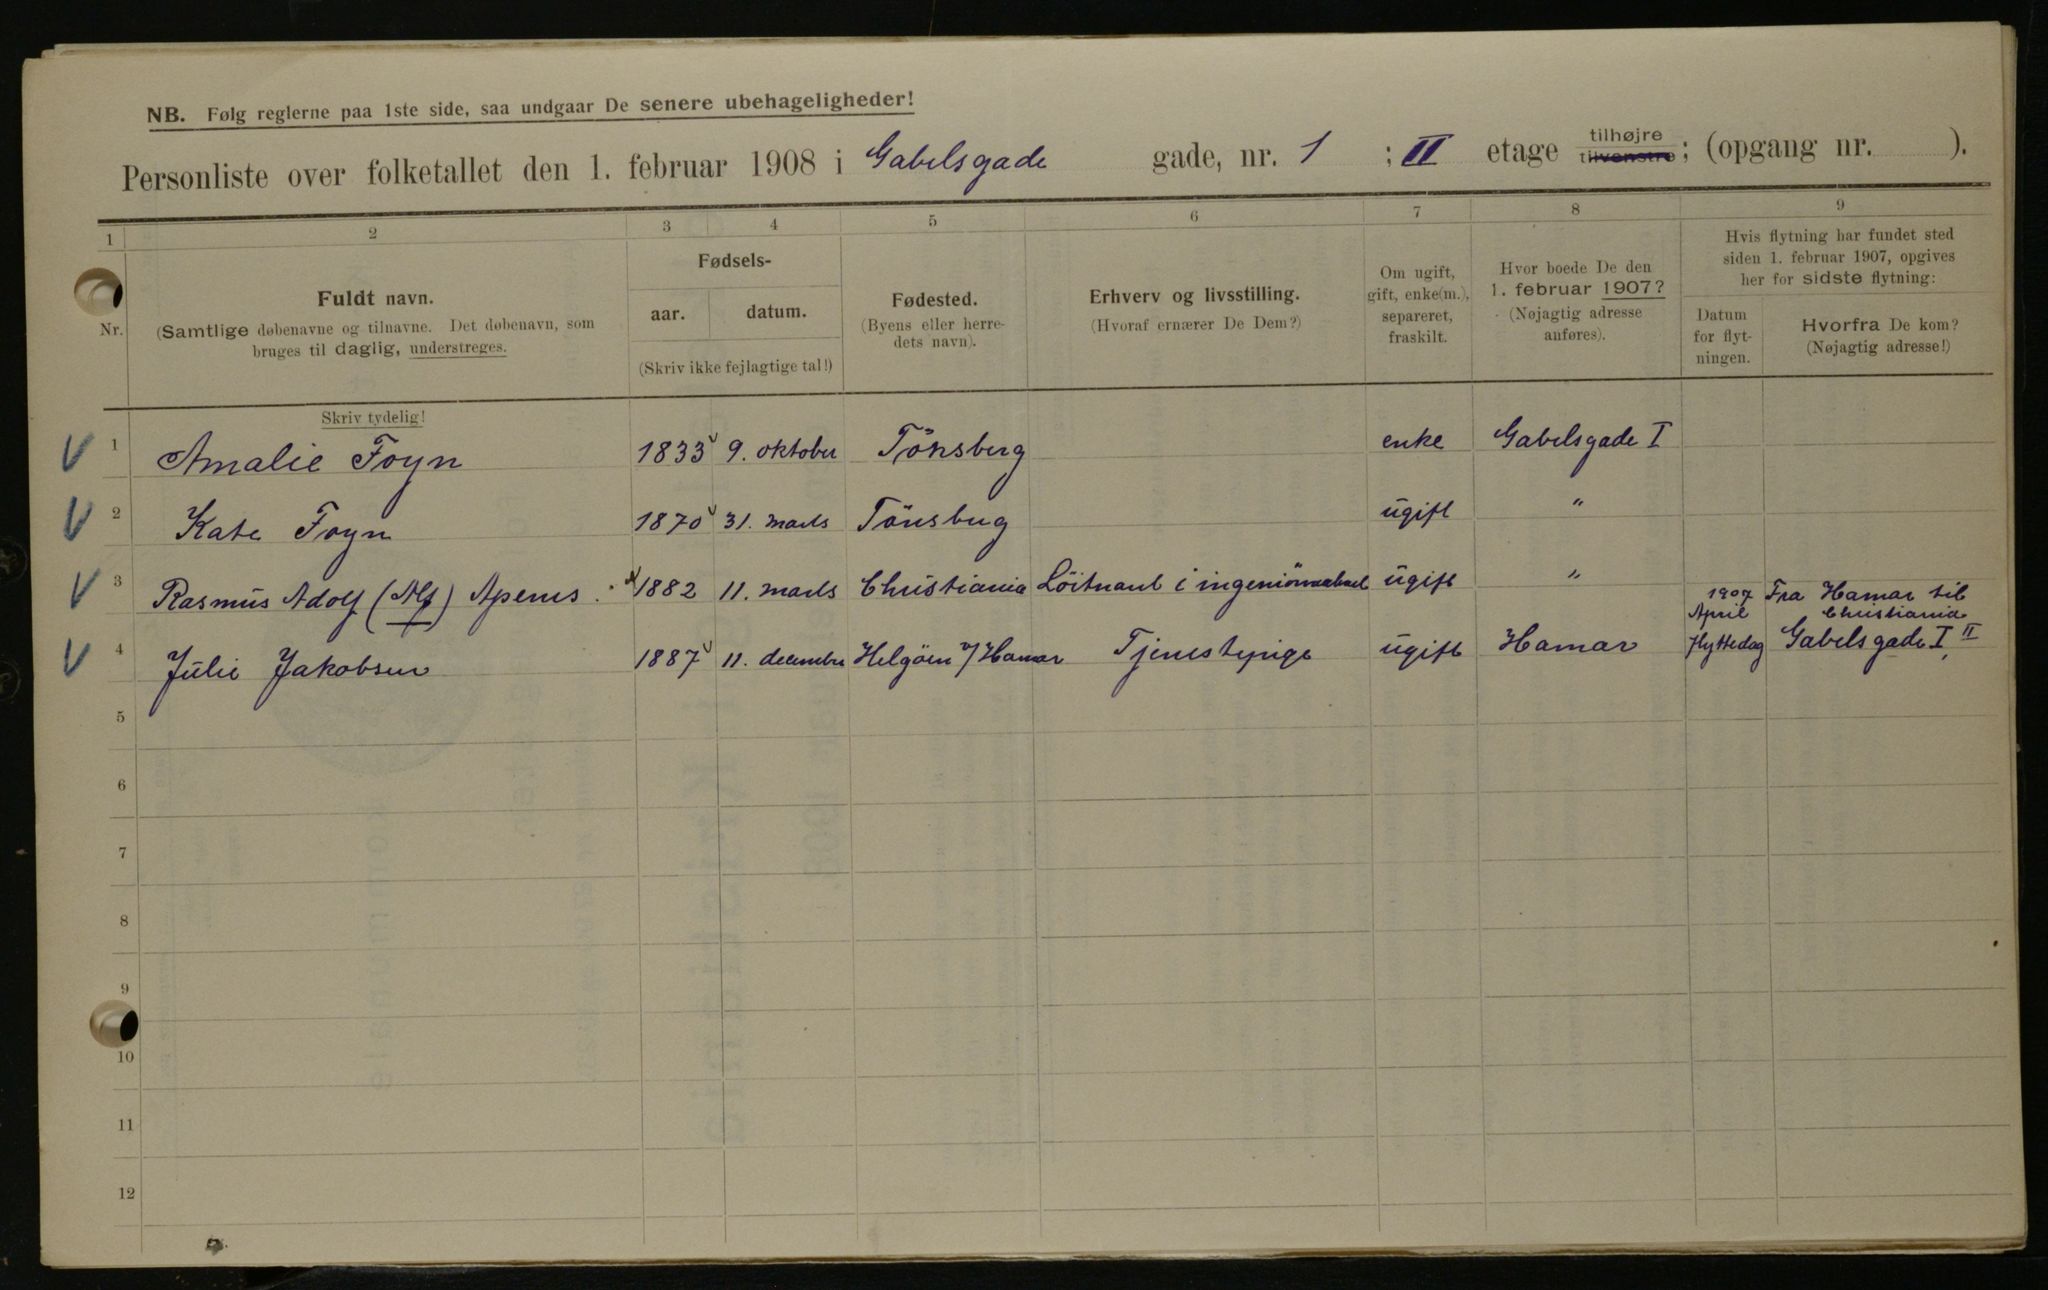 NB. Følg reglerne paa 1ste side, saa undgaar De senere ubehageligheder!
Personliste over folketallet den 1. februar 1908 i Gabelsgade gade, nr. 1 ; II etage tilhøjre tilvenstre; (opgang nr. ).
1 2 3 4 5 6 7 8 9
Nr.
Fuldt navn.
(Samtlige døbenavne og tilnavne. Det døbenavn, som
bruges til daglig, understreges.
Fødsels-
aar. datum.
(Skriv ikke fejlagtige tal!)
Fødested.
(Byens eller herre-
dets navn).
Erhverv og livsstilling.
(Hvoraf ernærer De Dem?)
Om ugift,
gift, enke(m.),
separeret,
fraskilt.
Hvor boede De den
1. februar 1907?
(Nøjagtig adresse
anføres).
Hvis flytning har fundet sted
siden 1. februar 1907, opgives
her for sidste flytning:
Datum
for flyt-
ningen.
Hvorfra De kom?
(Nøjagtig adresse!)
Skriv tydelig!
1 Amalie Foyn 1833 9. oktober Tönsberg enke Gabelsgade I
2 Kate Foyn 1870 31. marts Tönsberg ugift "
3 Rasmus Adolf (Alf) Apenes 1882 11. marts Christiania Löitnant i ugift "
1907 Fra Hamar til
April Christiania
4 Julie Jakobsen 1887 11. decembre Helgöen v/Hamar Tjenestepige ugift Hamar Flyttedag Gabelsgade I, II
5
6
7
8
9
10
11
12